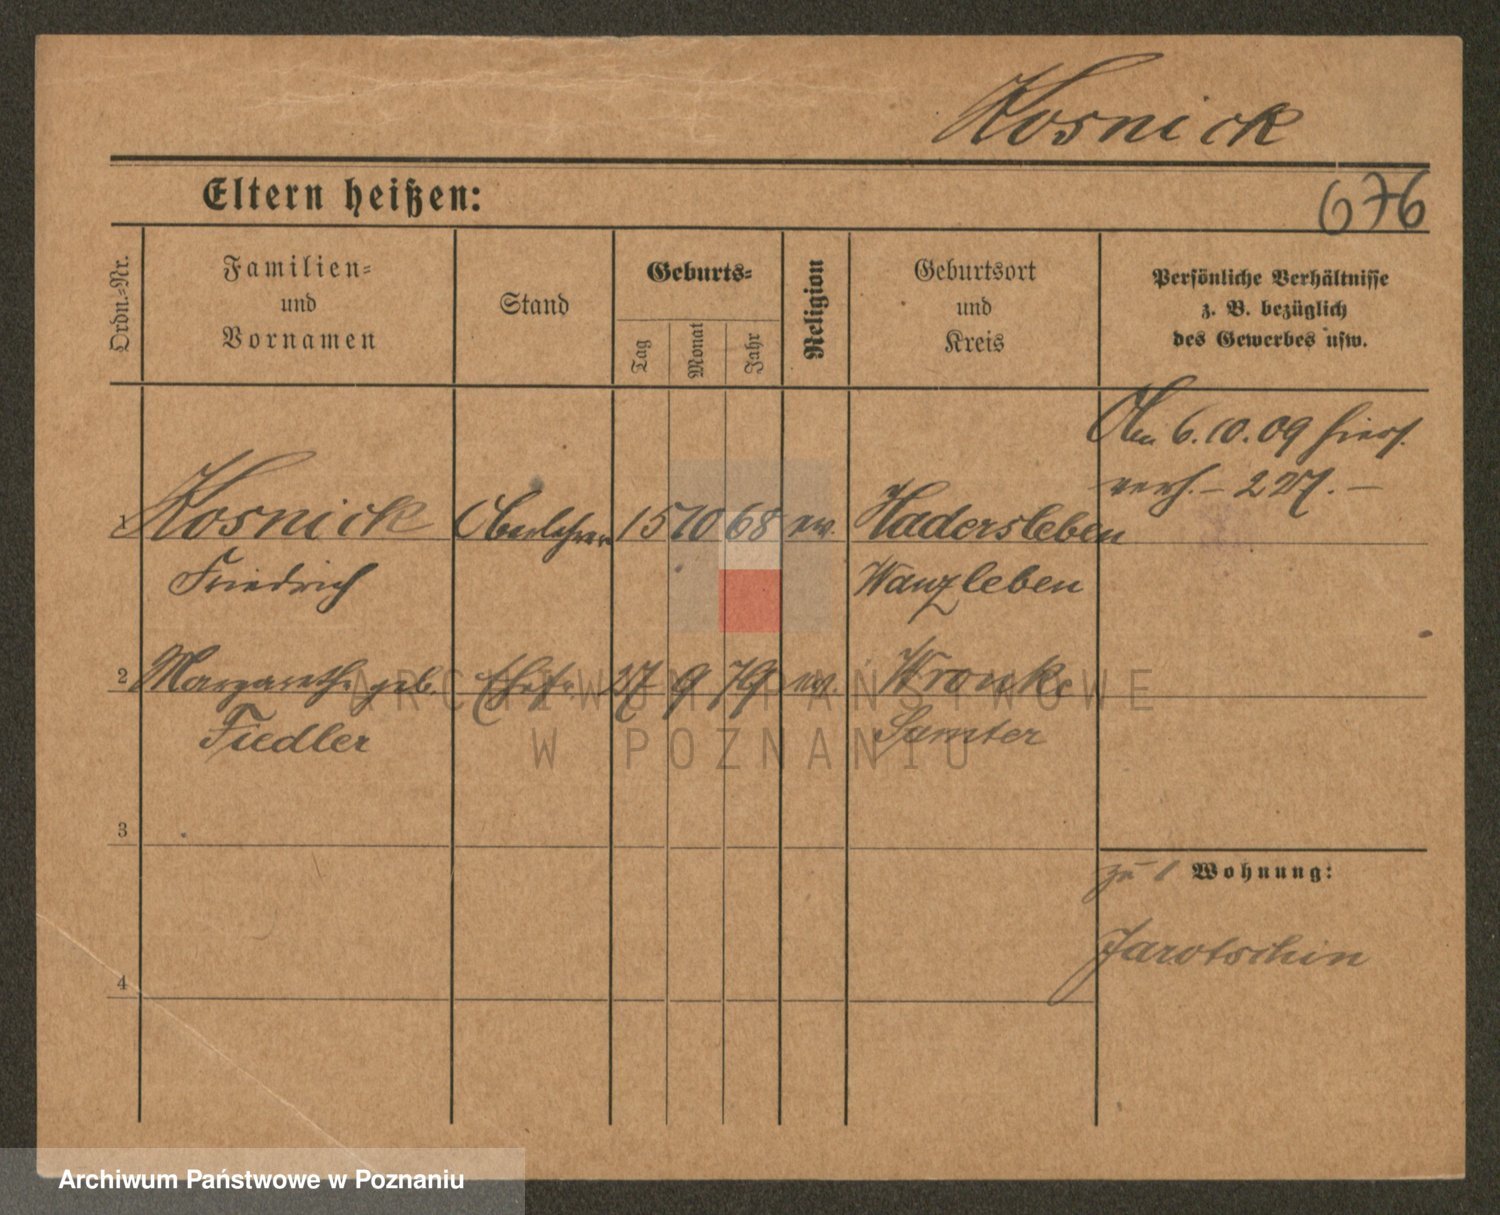 Kosnick
Eltern heißen:
676
Ordn.-Nr.
Familien-
und
Vornamen
Stand
Geburts-
Tag
Monat
Jahr
Religion
Geburtsort
und
Kreis
Persönliche Verhältnisse
z. B. bezüglich
des Gewerbes usw.
Am 6.10.09 hier
verh. – 227. –
1 Kosnick Oberlehrer 15 10 68 ev. Hadersleben
Friedrich Wanzleben
2 Margarethe geb. Ehefr. 27 9 79 ev. Wronke
Fiedler Samter
3
zu 1 Wohnung:
Jarotschin
4
ARCHIWUM PAŃSTWOWE
W POZNANIU
Archiwum Państwowe w Poznaniu